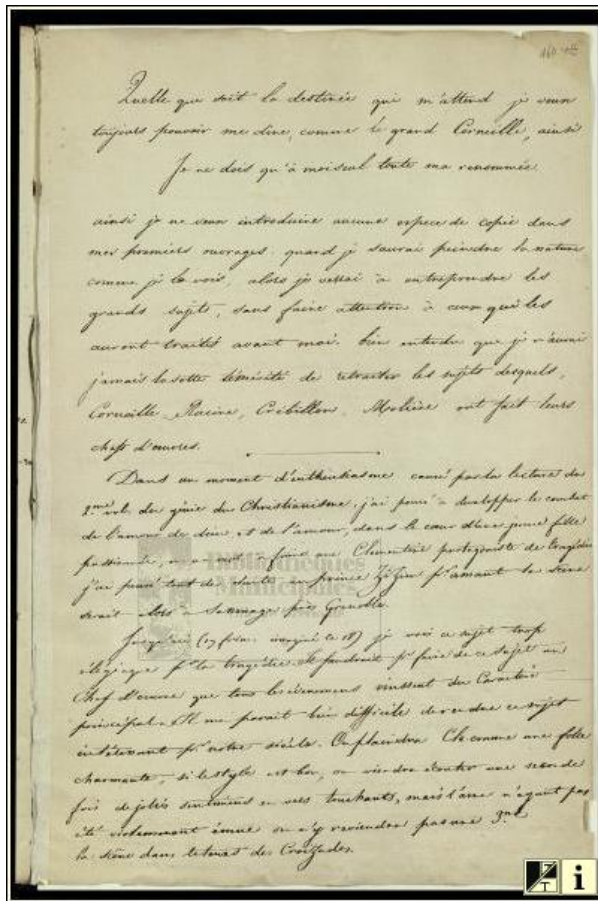 160
Quelle que soit la destinée qui m'attend je veux
toujours pouvoir me dire, comme le grand Corneille, ainsi
Je ne dois qu'à moi seul toute ma renommée.
ainsi je ne veux introduire aucune espece de copie dans
mes premiers ouvrages. quand je saurai peindre la nature
comme je la vois, alors je verrai à entreprendre les
grands sujets, sans faire attention à ceux qui les
auront traités avant moi. bien entendu que je n'aurai
jamais la sotte témérité de retraiter les sujets desquels,
Corneille, Racine, Crébillon, Molière ont fait leurs
chefs d'œuvres.
Dans un moment d'enthousiasme causé par la lecture du
2.me vol. du génie du Christianisme, j'ai pensé à developper le combat
de l'amour de dieu et de l'amour, dans le cœur d'une jeune fille
passionnée, faire une Clémentine protagoniste de tragédie
j'ai pensé tout de suite au prince Zizim pr amant la scène
serait alors à Sassenage près Grenoble.
Jusqu'ici je vois ce sujet trop
élégiaque pr la tragédie. Il faudrait pr faire de ce sujet un
Chef d'œuvre que tous les évènemens vinssent du Caractère
principal. Il me parait bien difficile de rendre ce sujet
intéressant pr notre siècle. On plaindra Cle comme une folle
charmante, si le style est bon, on viendra écouter une seconde
fois de jolis sentimens en vers touchants, mais l'âme n'ayant pas
été violemment émue on n'y reviendra pas une 3.me
la scène dans le tems des Croizades.
Bibliothèques
Municipales
i